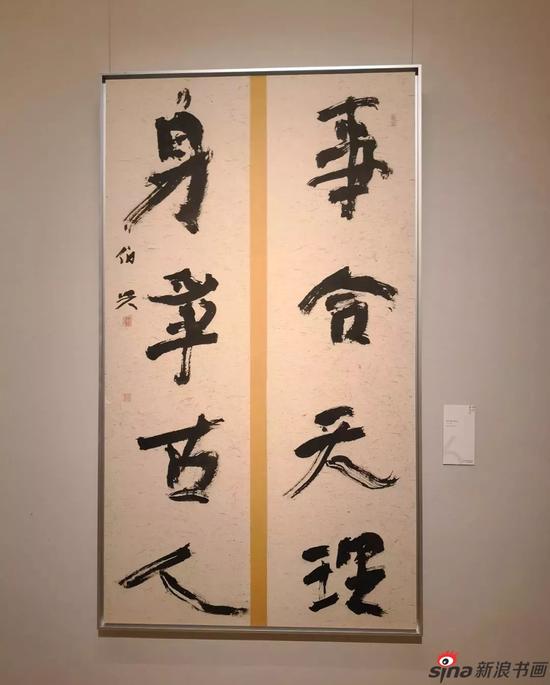 事合天理
身古人
伯
sina 新浪书画